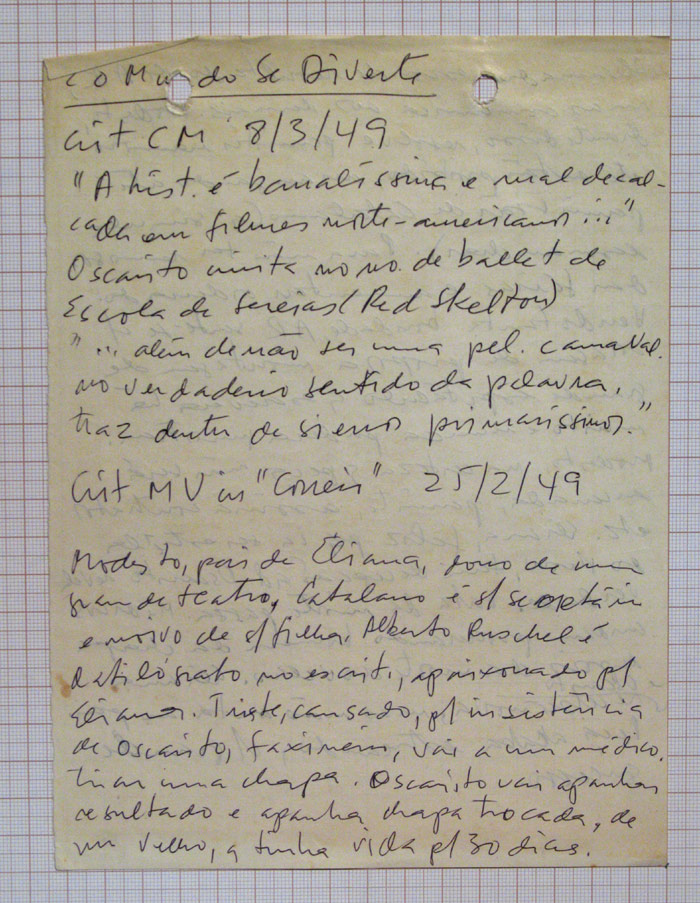 E o Mundo Se Diverte
Crit CM 8/3/49
"A hist. é banalíssima e mal decal-
cada em filmes norte-americanos..."
Oscarito imita no no. de ballet de
Escola de Sereias (Red Skelton)
"... além de não ser uma pel. carnaval.
no verdadeiro sentido da palavra,
traz dentro de si erros primaríssimos."
Crit MV in "Correio" 25/2/49
Modesto, pai de Eliana, dono de um
grande teatro, Catalano é s/ secretário
e noivo de s/ filha, Alberto Ruschel é
datilógrafo no escrit., apaixonado p/
Eliana. Triste, cansado, p/ insistência
de Oscarito, faxineiro, vai a um médico,
tirar uma chapa. Oscarito vai apanhar
resultado e apanha chapa trocada, de
um velho, q tinha vida p/ 30 dias.